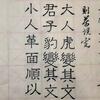 大人虎變其文
君子豹變其文
小人革面順以